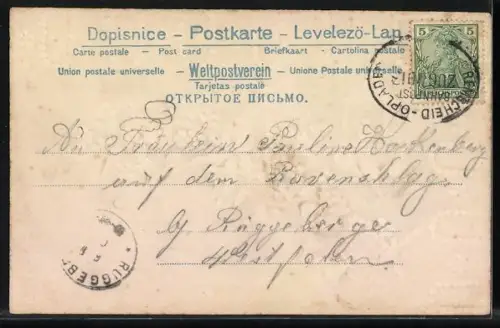 Dopisnice – Postkarte – Levelezö-Lap
Carte postale – Post card Briefkaart – Cartolina postale
Union postale universelle – Weltpostverein – Unione Postale universale
Tarjetas postale
ОТКРЫТОЕ ПИСЬМО.
5 5
REMSCHEID-OPLADEN
BAHNPOST
ZUG
An Fräulein Pauline
auf dem
Rüggeberge
Westfalen
RÜGGEBE